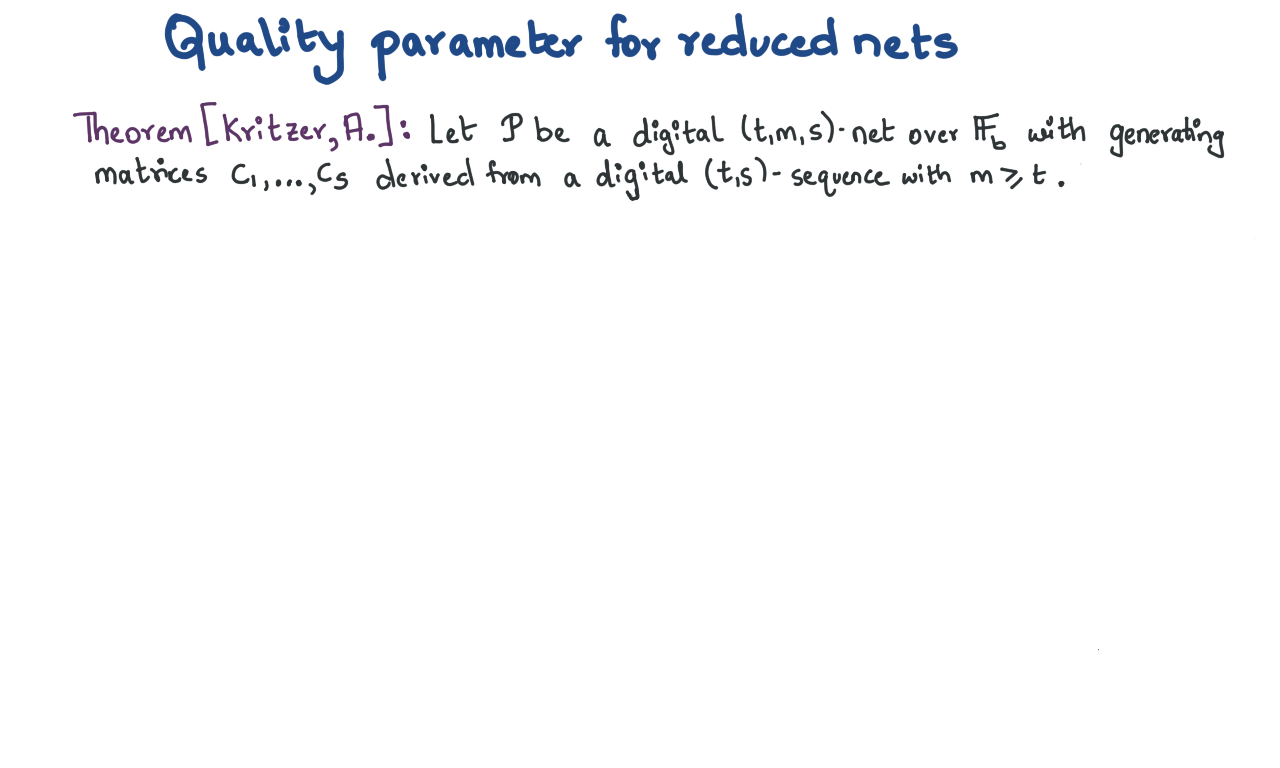 Quality parameter for reduced nets
Theorem [Kritzer, A.]: Let P be a digital (t,m,s)-net over 𝔽_b with generating
matrices C₁,...,Cₛ derived from a digital (t,s)-sequence with m ⩾ t.